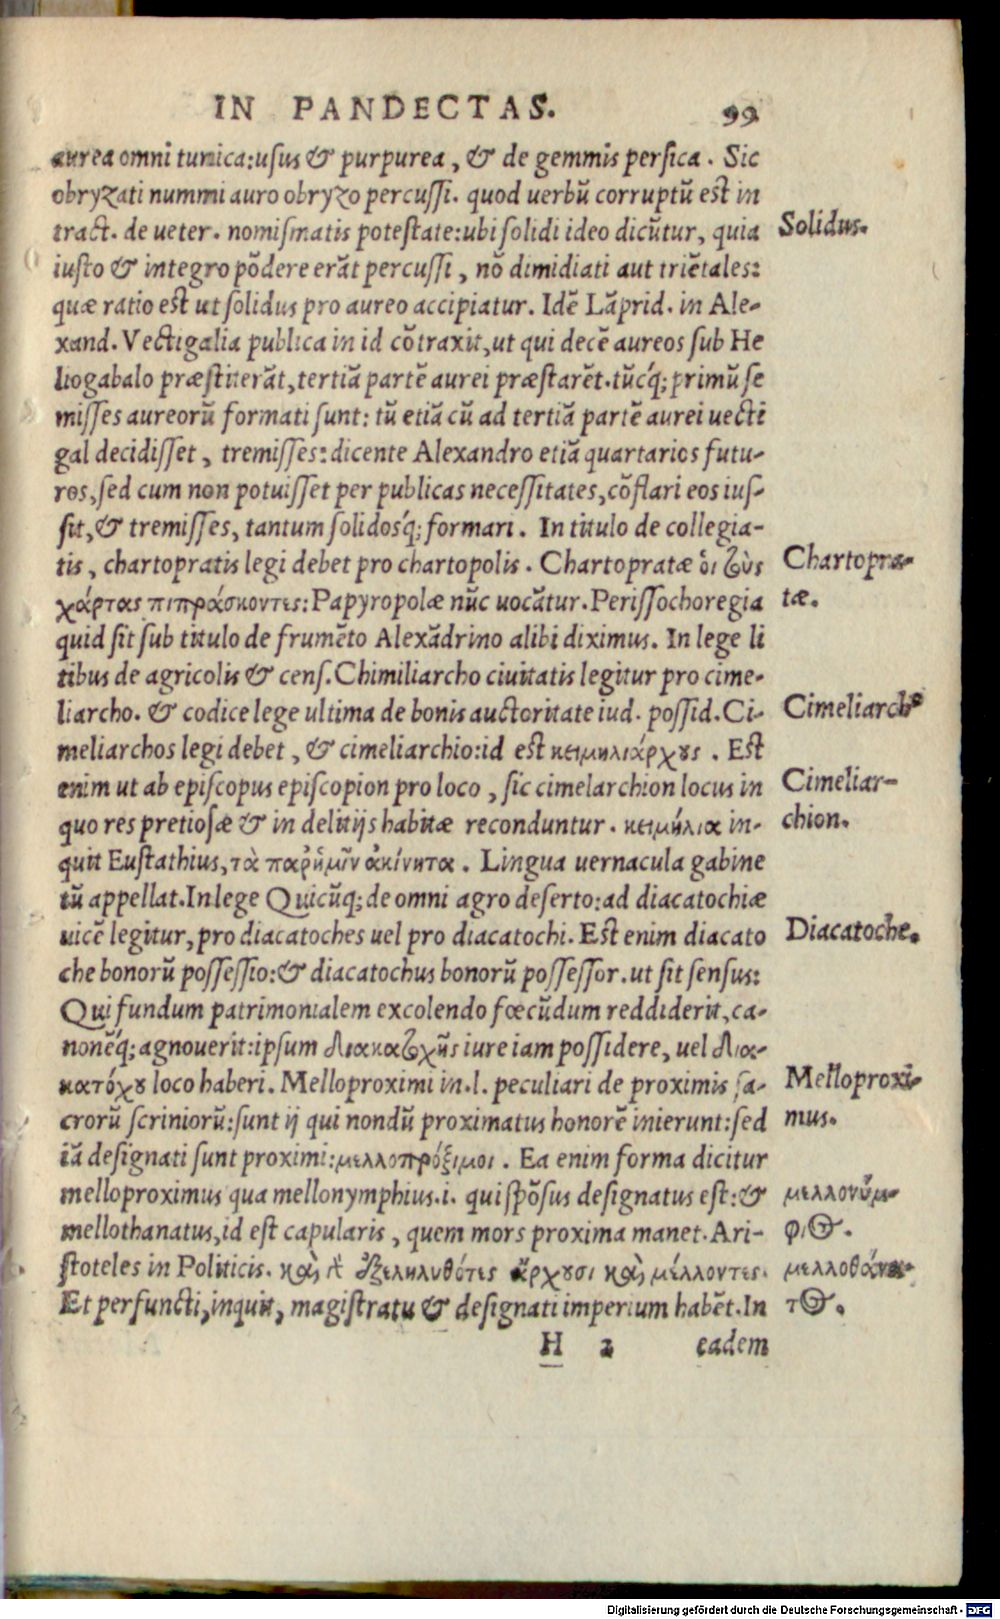 IN PANDECTAS. 99
aurea omni tunica: usus & purpurea, & de gemmis persica. Sic
obryzati nummi auro obryzo percussi. quod uerbũ corruptũ est in
tract. de ueter. nomismatis potestate: ubi solidi ideo dicũtur, quia
Solidus.
iusto & integro põdere erãt percussi, nõ dimidiati aut triẽtales:
quæ ratio est ut solidus pro aureo accipiatur. Idẽ Lãprid. in Ale-
xand. Vectigalia publica in id cõtraxit, ut qui decẽ aureos sub He
liogabalo præstiterãt, tertiã partẽ aurei præstarẽt. tũcq́; primũ se
misses aureorũ formati sunt: tũ etiã cũ ad tertiã partẽ aurei uecti
gal decidisset, tremisses: dicente Alexandro etiã quartarios futu-
ros, sed cum non potuisset per publicas necessitates, cõflari eos ius-
sit, & tremisses, tantum solidosq́; formari. In titulo de collegia-
tis, chartopratis legi debet pro chartopolis. Chartopratæ ὁι τοὺς
Chartopra-
χάρτας πιπράσκοντες: Papyropolæ nũc uocãtur. Perissochoregia
tæ.
quid sit sub titulo de frumẽto Alexãdrino alibi diximus. In lege li
tibus de agricolis & cens. Chimiliarcho ciuitatis legitur pro cime-
liarcho. & codice lege ultima de bonis auctoritate iud. possid. Ci-
Cimeliarchꝰ
meliarchos legi debet, & cimeliarchio: id est κειμηλιάρχους. Est
enim ut ab episcopus episcopion pro loco, sic cimelarchion locus in
Cimeliar-
quo res pretiosæ & in delitijs habitæ reconduntur. κειμήλια in-
chion.
quit Eustathius, τὰ παρ' ἡμῖν ἀκίνητα. Lingua uernacula gabine
tũ appellat. In lege Quicũq; de omni agro deserto: ad diacatochiæ
uicẽ legitur, pro diacatoches uel pro diacatochi. Est enim diacato
Diacatoche.
che bonorũ possessio: & diacatochus bonorũ possessor. ut sit sensus:
Qui fundum patrimonialem excolendo fœcũdum reddiderit, ca-
nonẽq́; agnouerit: ipsum διακατοχῆς iure iam possidere, uel δια-
κατόχου loco haberi. Melloproximi in .l. peculiari de proximis sa-
Melloproxi-
crorũ scriniorũ: sunt ij qui nondũ proximatus honorẽ inierunt: sed
mus.
iã designati sunt proximi: μελλοπρόξιμοι. Ea enim forma dicitur
melloproximus qua mellonymphius .i. qui spõsus designatus est: &
μελλονύμ-
mellothanatus, id est capularis, quem mors proxima manet. Ari-
φιος.
stoteles in Politicis. καὶ οἱ ἐξεληλυθότες ἄρχουσι καὶ μέλλοντες.
μελλοθάνα-
Et perfuncti, inquit, magistratu & designati imperium habẽt. In
τος.
H 2 eadem
Digitalisierung gefördert durch die Deutsche Forschungsgemeinschaft - DFG